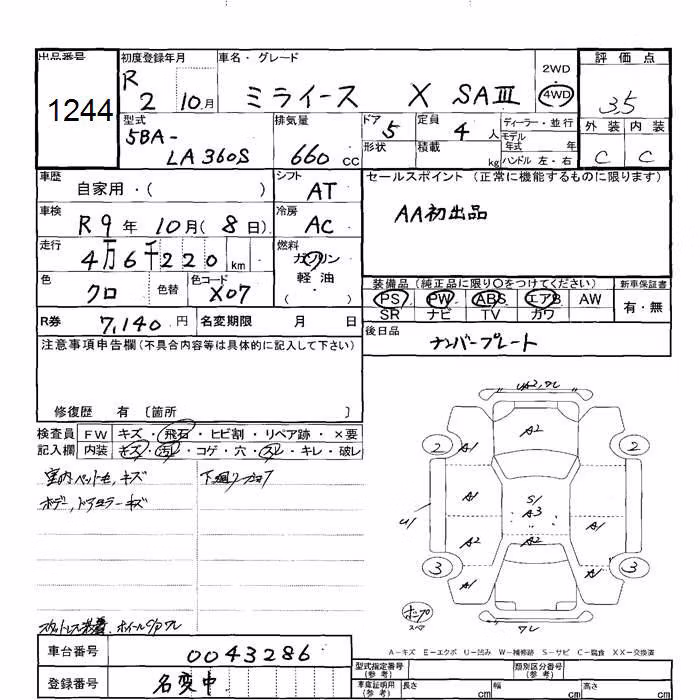 出品番号 初度登録年月 車名・グレード 2WD 評価点
1244 R 2 10月 ミライース X SAⅢ 4WD 3.5
型式 排気量 ドア 定員 ディーラー・並行 外装 内装
5BA- LA360S 660 cc 5 4人 モデル年式 年 C C
形状 積載 kg ハンドル 左・右
車歴 シフト セールスポイント (正常に機能するものに限ります)
自家用・( ) AT AA初出品
車検 冷房
R9年10月(8日) AC
走行 燃料
4万6千220km ガソリン
色 色替 色コード 軽油
クロ X07 ( )
装備品 (純正品に限り〇をつけてください) 新車保証書
PS PW ABS エアB AW 有・無
SR ナビ TV カワ
R券 7,140円 名変期限 月 日
後日品 ナンバープレート
注意事項申告欄(不具合内容等は具体的に記入して下さい)
修復歴 有 〔箇所 〕
検査員 FW キズ・飛石・ヒビ割・リペア跡・×要
記入欄 内装 キズ・汚レ・コゲ・穴・スレ・キレ・破レ
室内ペット毛,キズ
ボデー,ドアミラーキズ
A2
2 2
A1
A1 S1 A3 A1
U1
A2 A2
3 3
A1 A1
ワレ
A-キズ E-エクボ U-凹み W-補修跡 S-サビ C-腐食 XX-交換済
車台番号 0043286
登録番号 名変中
型式指定番号(参考) 類別区分番号(参考)
車庫証明用(参考) 長さ cm 幅 cm 高さ cm